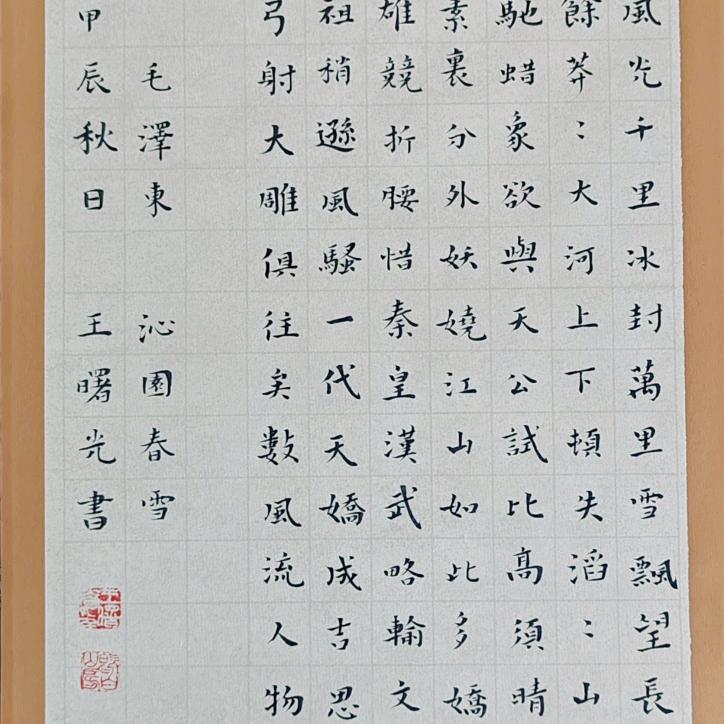 風光千里冰封萬里雪飄望長
餘莽〻大河上下頓失滔〻山
馳蜡象欲與天公試比高須晴
素裹分外妖嬈江山如此多嬌
雄競折腰惜秦皇漢武略輸文
祖稍遜風騷一代天嬌成吉思
弓射大雕俱往矣數風流人物
毛澤東 沁園春雪
甲辰秋日 王曙光書